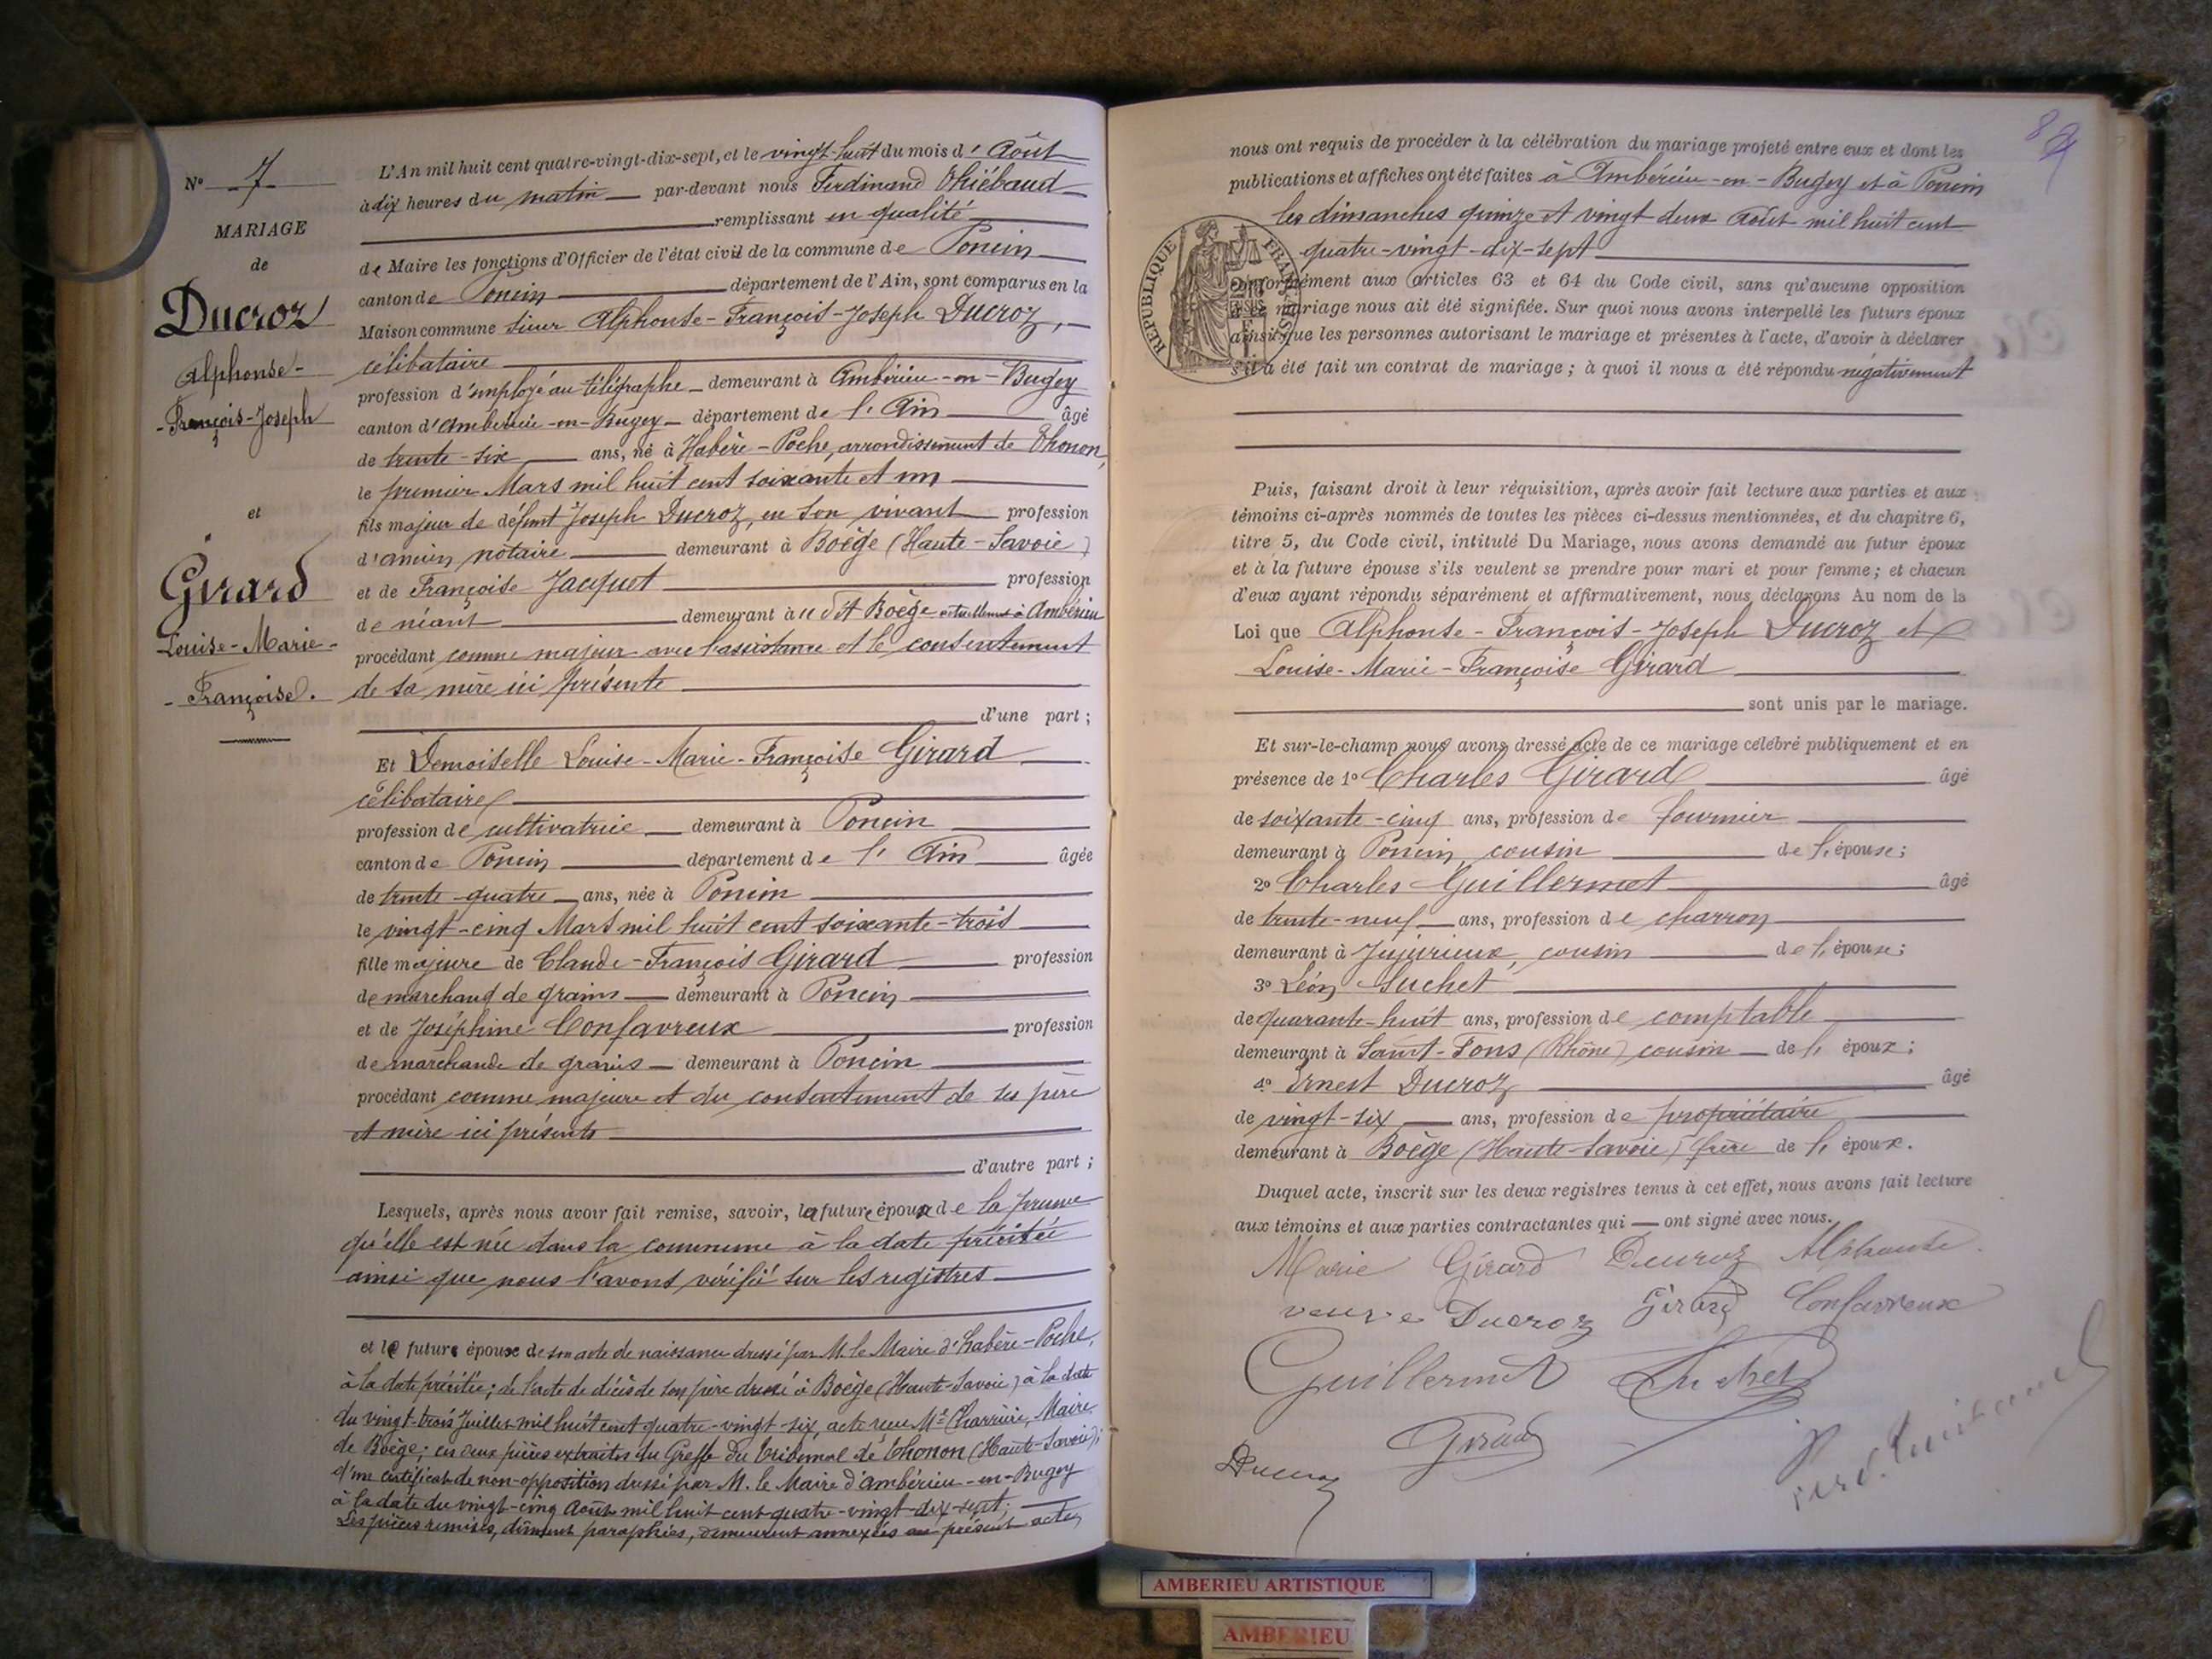 N° 7
MARIAGE
de
Ducroz
Alphonse-
-François-Joseph
et
Girard
Louise-Marie-
-Françoise.
L'An mil huit cent quatre-vingt-dix-sept, et le vingt-huit du mois d'Août
à dix heures du matin par-devant nous Ferdinand Thiébaud
remplissant en qualité
de Maire les fonctions d'Officier de l'état civil de la commune de Poncin
canton de Poncin département de l'Ain, sont comparus en la
Maison commune sieur Alphonse-François-Joseph Ducroz,
célibataire
profession d'employé au télégraphe demeurant à Ambérieu-en-Bugey
canton d'Ambérieu-en-Bugey département de l'Ain âgé
de trente-six ans, né à Habère-Poche, arrondissement de Thonon,
le premier Mars mil huit cent soixante et un
fils majeur de défunt Joseph Ducroz, en son vivant profession
d'ancien notaire demeurant à Boëge (Haute-Savoie)
et de Françoise Jacquet profession
de néant demeurant à u dit Boëge actuellement à Ambérieu
procédant comme majeur avec l'assistance et le consentement
de sa mère ici présente
d'une part;
Et Demoiselle Louise-Marie-Françoise Girard
célibataire
profession de cultivatrice demeurant à Poncin
canton de Poncin département de l'Ain âgée
de trente-quatre ans, née à Poncin
le vingt-cinq Mars mil huit cent soixante-trois
fille majeure de Claude-François Girard profession
de marchand de grains demeurant à Poncin
et de Joséphine Confavreux profession
de marchande de grains demeurant à Poncin
procédant comme majeure et du consentement de ses père
et mère ici présents
d'autre part;
Lesquels, après nous avoir fait remise, savoir, la future épouse de la preuve
qu'elle est née dans la commune à la date précitée
ainsi que nous l'avons vérifié sur les registres
et le futur époux de son acte de naissance dressé par M. le Maire d'Habère-Poche,
à la date précitée; de l'acte de décès de son père dressé à Boëge (Haute-Savoie) à la date
du vingt-trois Juillet mil huit cent quatre-vingt-six, acte reçu Mr Charrière, Maire
de Boëge; ces deux pièces extraites du Greffe du Tribunal de Thonon (Haute-Savoie);
d'un certificat de non-opposition dressé par M. le Maire d'Ambérieu-en-Bugey
à la date du vingt-cinq Août mil huit cent quatre-vingt-dix-sept;
Les pièces remises, dûment paraphées, demeurent annexées au présent acte,
nous ont requis de procéder à la célébration du mariage projeté entre eux et dont les
publications et affiches ont été faites à Ambérieu-en-Bugey et à Poncin
les dimanches quinze et vingt deux Août mil huit cent
quatre-vingt-dix-sept
RÉPUBLIQUE FRANÇAISE
conformément aux articles 63 et 64 du Code civil, sans qu'aucune opposition
à ce mariage nous ait été signifiée. Sur quoi nous avons interpellé les futurs époux
ainsi que les personnes autorisant le mariage et présentes à l'acte, d'avoir à déclarer
s'il a été fait un contrat de mariage; à quoi il nous a été répondu négativement
Puis, faisant droit à leur réquisition, après avoir fait lecture aux parties et aux
témoins ci-après nommés de toutes les pièces ci-dessus mentionnées, et du chapitre 6,
titre 5, du Code civil, intitulé Du Mariage, nous avons demandé au futur époux
et à la future épouse s'ils veulent se prendre pour mari et pour femme; et chacun
d'eux ayant répondu séparément et affirmativement, nous déclarons Au nom de la
Loi que Alphonse-François-Joseph Ducroz et
Louise-Marie-Françoise Girard
sont unis par le mariage.
Et sur-le-champ nous avons dressé acte de ce mariage célébré publiquement et en
présence de 1° Charles Girard âgé
de soixante-cinq ans, profession de fournier
demeurant à Poncin, cousin de l'épouse;
2° Charles Guillermet âgé
de trente-neuf ans, profession de charron
demeurant à Jujurieux, cousin de l'épouse;
3° Léon Suchet
de quarante-huit ans, profession de comptable
demeurant à Saint-Fons (Rhône) cousin de l'époux;
4° Ernest Ducroz âgé
de vingt-six ans, profession de propriétaire
demeurant à Boëge (Haute-Savoie) frère de l'époux.
Duquel acte, inscrit sur les deux registres tenus à cet effet, nous avons fait lecture
aux témoins et aux parties contractantes qui ont signé avec nous.
Marie Girard Ducroz Alphonse
veuve Ducroz Girard Confavreux
Guillermet Suchet
Girard
Ducroz
AMBERIEU ARTISTIQUE
AMBERIEU